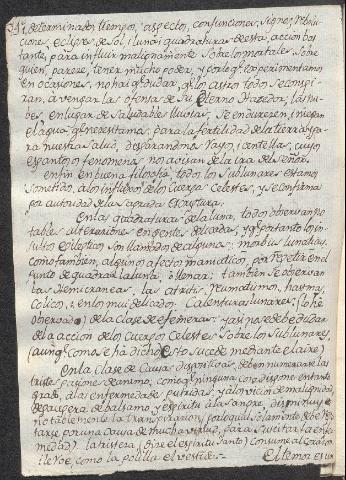 determinados tiempos, aspectos, conjunciones, signos, revolu-
ciones, eclipses de sol, i luna, i quadraturas de esta, accion bas
tante, para influir malignamente sobre los mortales, sobre
quien, parece, tener mucho poder, y por lo q.e experimentamos
en ocasiones, no hai q.e dudar, q.e los astros todos se conspi-
ran, à vengar las ofensas de su Eterno Hazedor; las nu-
bes, en lugar de saludables lluvias, se endurecen, i niegan
el agua, q.e necesitamos, para la fertilidad de la tierra, y pa-
ra nuestra salud, desparandonos rayos, i centellas, cuyos
espantosos fenomenos nos avisan de la ira del Señor.
enfin en buena filosofia, todos los sublunares estamos
sometidos, à los influxos de los cuerpos Celestes, y se confirma
por autoridad de la sagrada Escritura.
En las quadraturas de la luna, todos observan no
tables alteraciones en gente delicada, y q.e por tanto los in-
sultos epilepticos son llamados de algunos: morbus lunaticus,
como tambien, algunos afectos maniaticos, por repetir en el
punto de quadrar la luna, ò llenar: tambien se observan
las Hemicraneas, las artritis, reumatismos, hasmas,
colicos, i en los mui delicados Calenturas lunares, (lo he
observado) de la clase de efemeras: y asi no se debe dudar
de la accion de los Cuerpos Celestes sobre los sublunares,
(aunq.e como se ha dicho, esto sucede mediante el aire)
En la clase de Causas dispositivas, deben numerarse las
tristes pasiones de animo, como q.e ninguna cosa dispone en tanto
grado, à las enfermedades putridas, y à los vicios de malignidad
despaupera de balsamo, y espiritu à la sangre, disminuye
notablemente la transpiracion, por lo qual solamente debe repu-
tarse por una causa de mucha virtud, para suscitar la enfer
medad. la tristeza (dize el espiritu Santo) consume al corazon
del hombre, como la polilla el vestido.
El temor es un